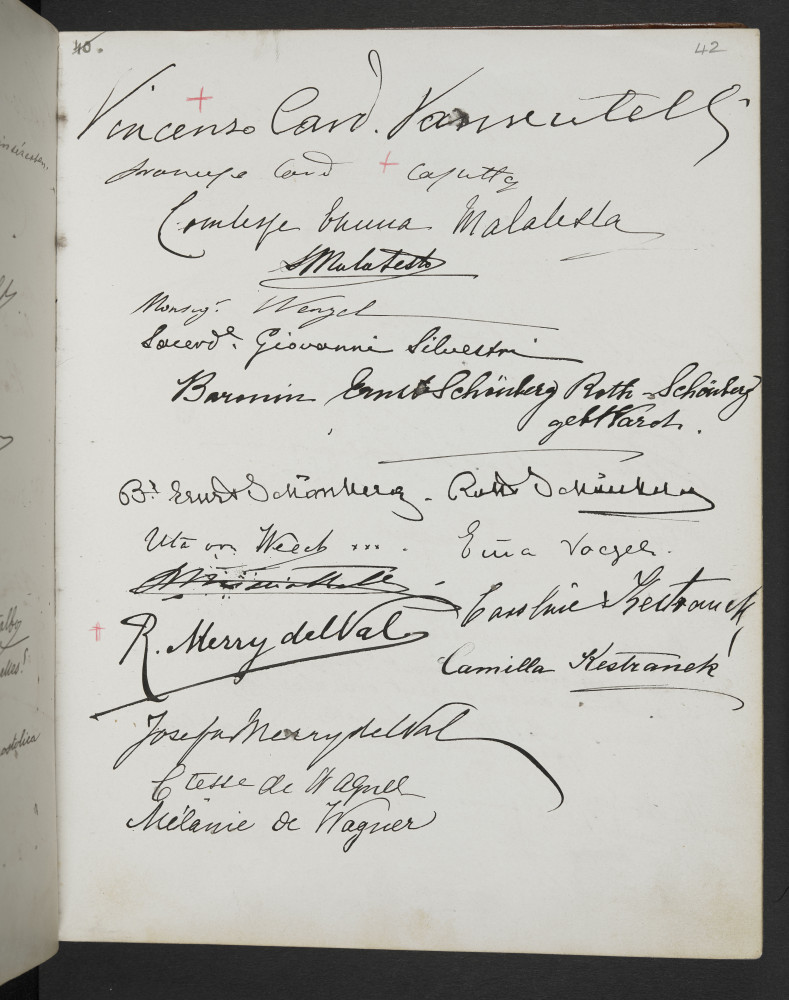 40.
42
Vincenzo Card. Vannutelli
Card Caputto
Comtesse Emma Malatesta
Malatesta
Monsig.r Wenzel
Sacerd.e Giovanni Silvestri
Baronin Ernst Schönberg Roth-Schönberg
geb.
B.r Ernst Schönberg - Roth Schönberg
Uta von Weech ... .
Erna Vogel.
Caroline Kestranek
R. Merry del Val
Camilla Kestranek
Josefa Merry del Val
Ctesse de Wagner
Mélanie de Wagner